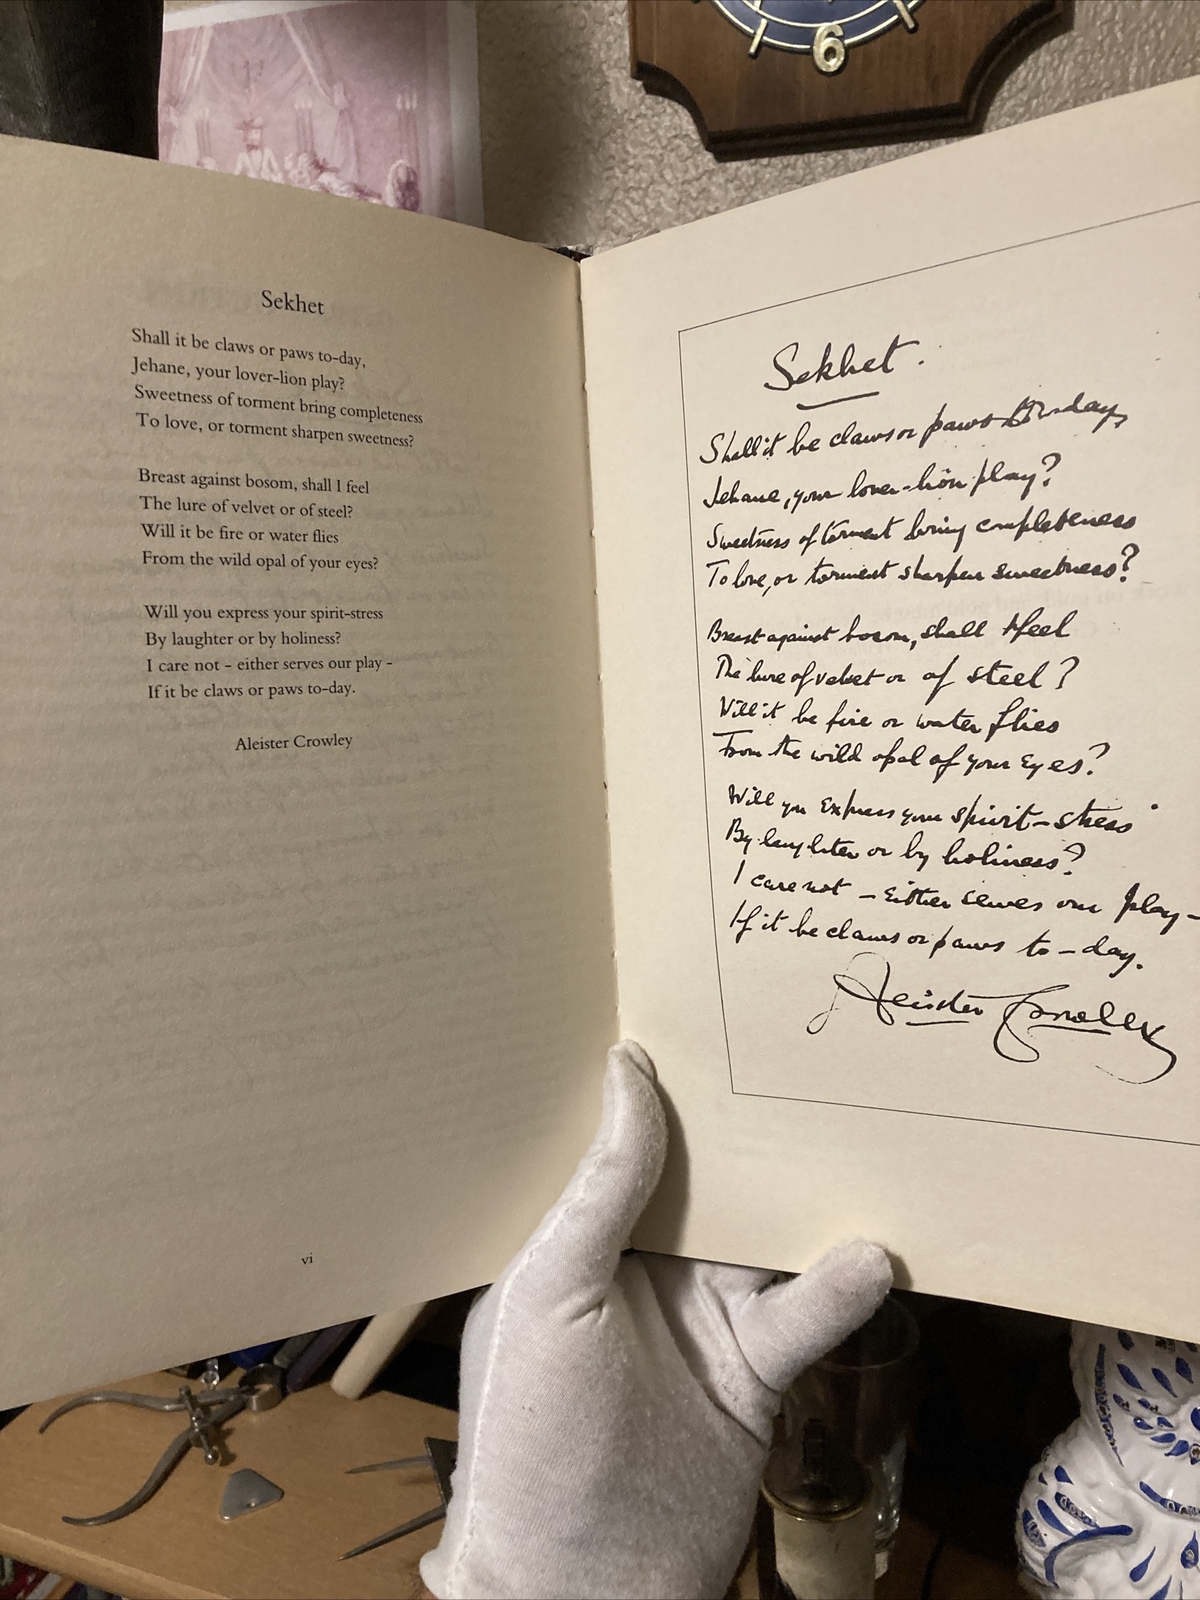 6
Sekhet
Shall it be claws or paws to-day,
Jehane, your lover-lion play?
Sweetness of torment bring completeness
To love, or torment sharpen sweetness?
Breast against bosom, shall I feel
The lure of velvet or of steel?
Will it be fire or water flies
From the wild opal of your eyes?
Will you express your spirit-stress
By laughter or by holiness?
I care not - either serves our play -
If it be claws or paws to-day.
Aleister Crowley
vi
Sekhet.
Shall it be claws or paws to-day,
Jehane, your lover-lion play?
Sweetness of torment bring completeness
To love, or torment sharpen sweetness?
Breast against bosom, shall I feel
The lure of velvet or of steel?
Will it be fire or water flies
From the wild opal of your Eyes?
Will you Express your spirit-stress
By laughter or by holiness?
I care not – Either serves our play –
If it be claws or paws to-day.
Aleister Crowley